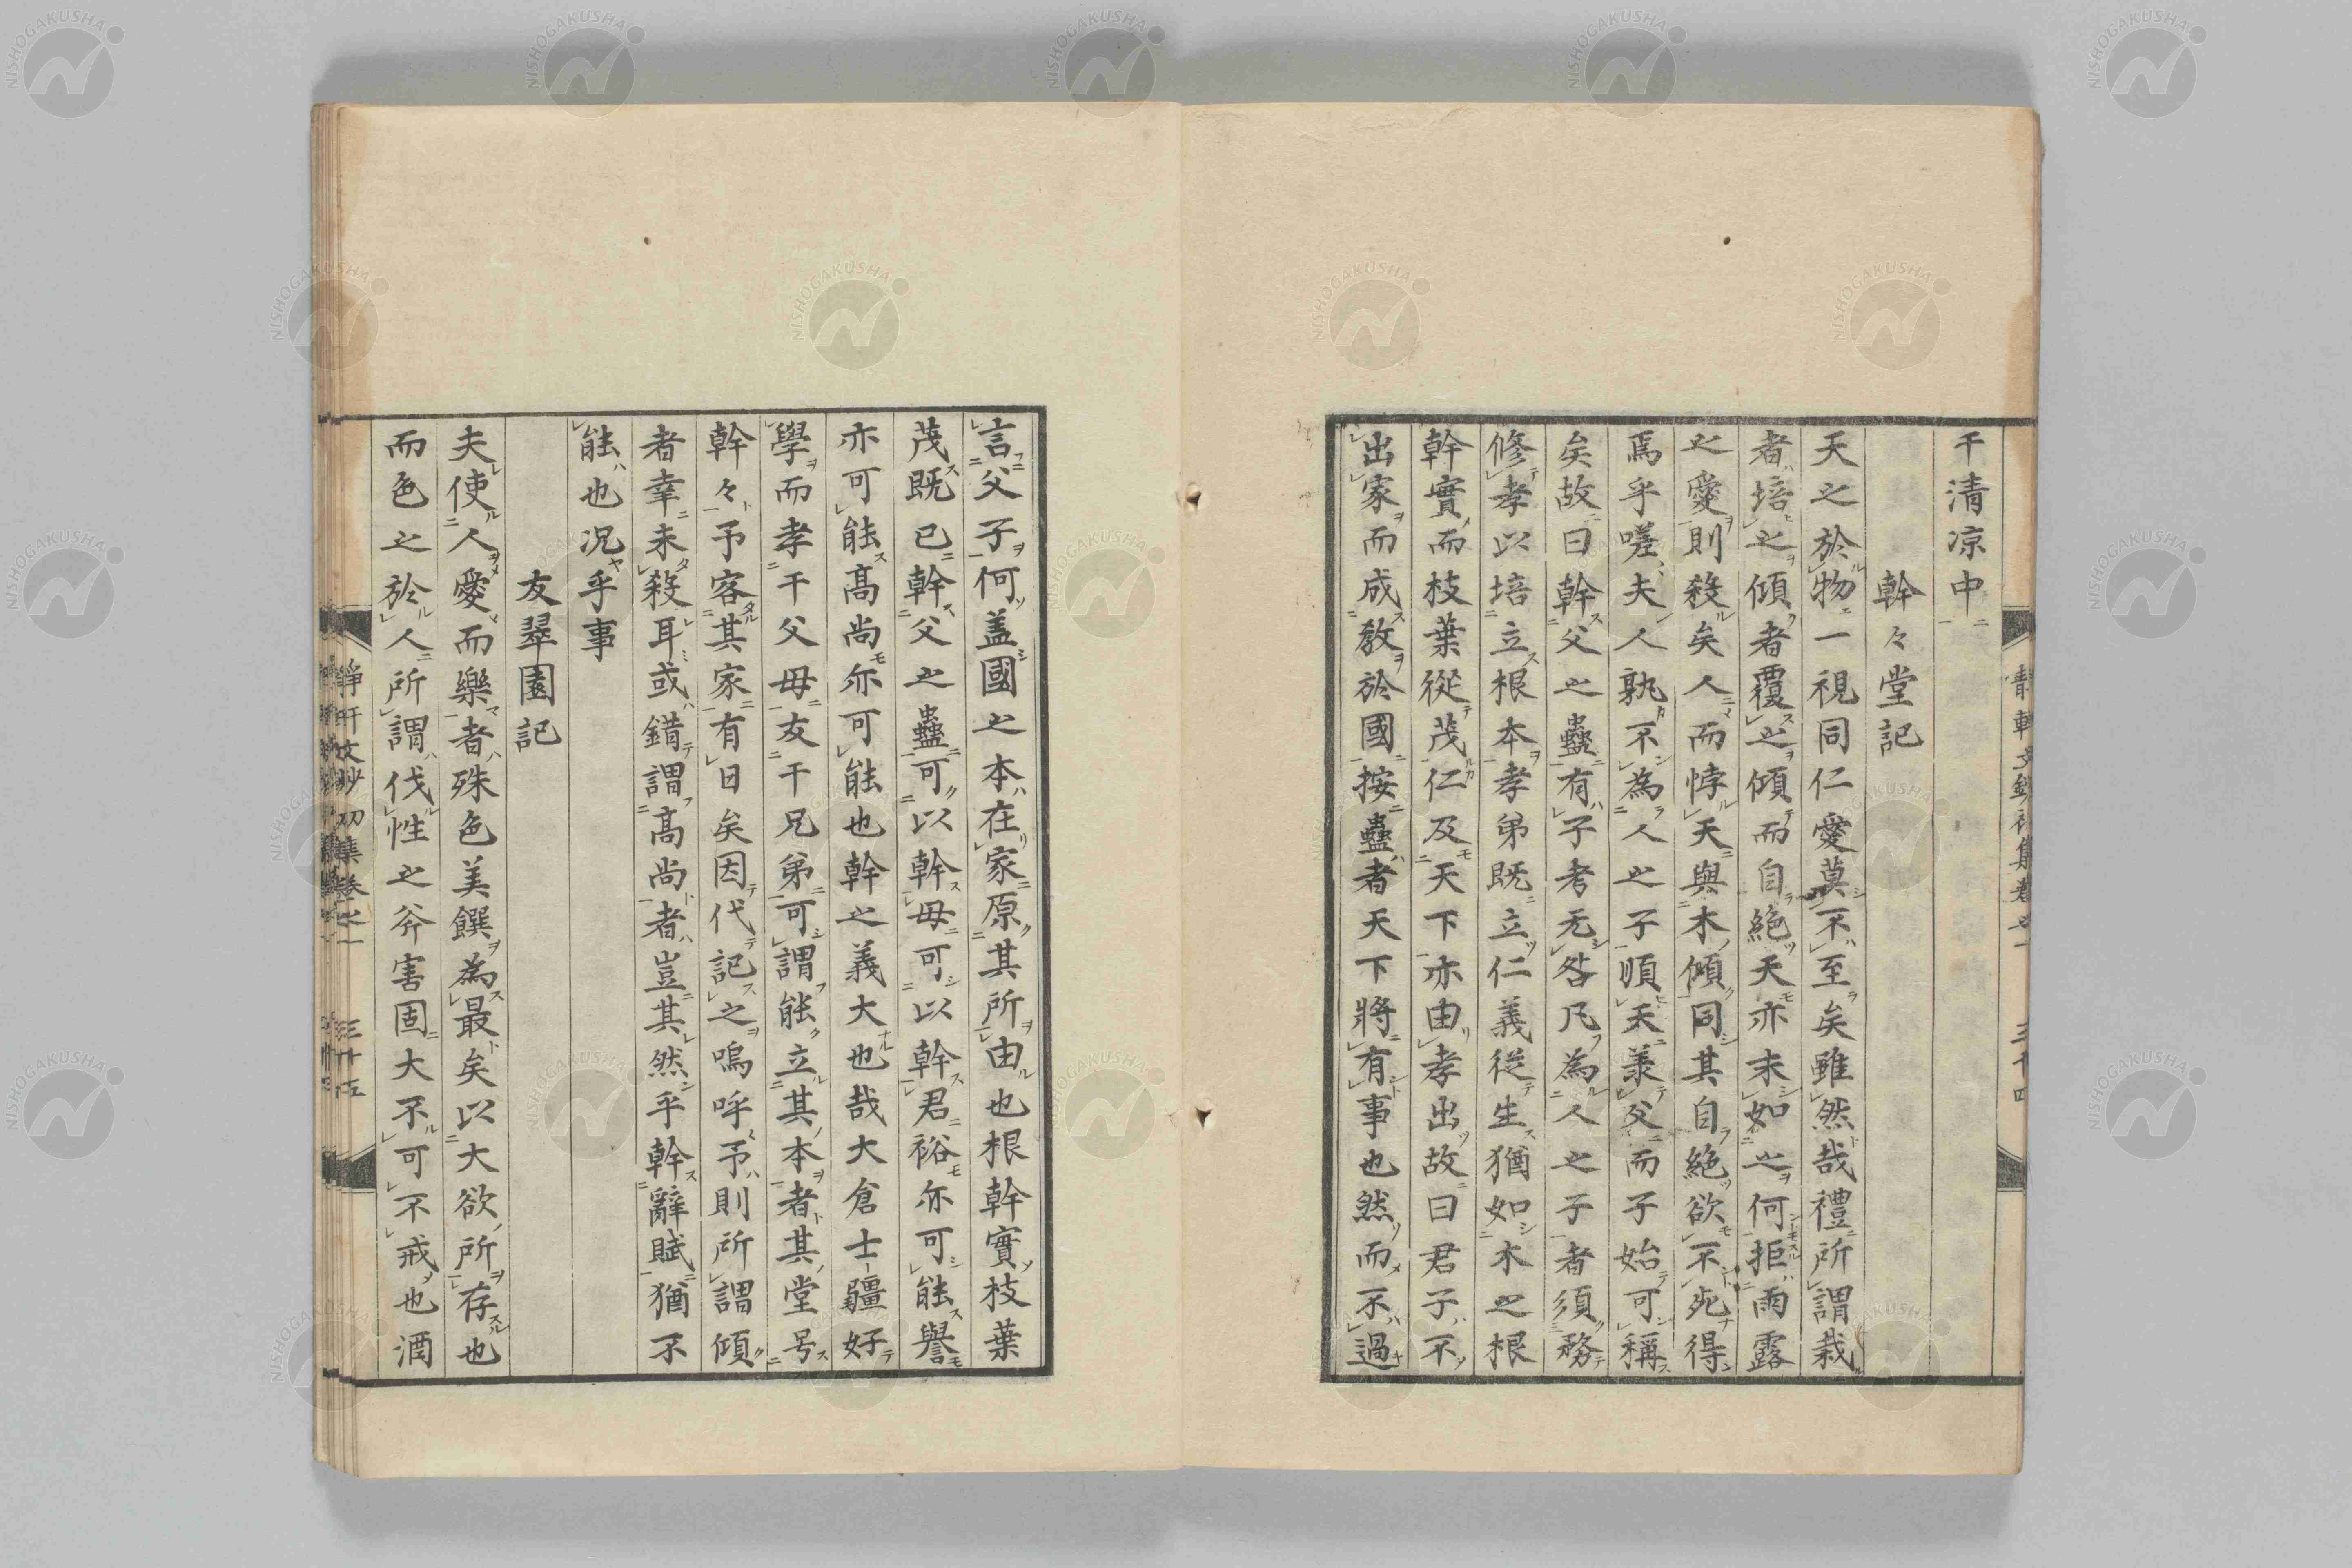 干清凉中
幹々堂記
天之於物一視同仁愛莫不至矣雖然哉禮所謂栽
者培之傾者覆之傾而自絶天亦未如之何拒雨露
之愛則殺矣人而悖天與木傾同其自絶欲不死得
焉乎嗟夫人孰不為人之子順天羕父而子始可稱
矣故曰幹父之蠱有子考无咎凡為人之子者須務
修孝以培立根本孝弟既立仁義従生猶如木之根
幹實而枝葉從茂仁及天下亦由孝出故曰君子不
出家而成教於國按蠱者天下將有事也然而不過
言父子何盖國之本在家原其所由也根幹實枝葉
茂既已幹父之蠱可以幹毋可以幹君裕亦可能譽
亦可能高尚亦可能也幹之義大也哉大倉士疆好
學而孝干父毋友干兄弟可謂能立其本者其堂号
幹々予客其家有日矣因代記之嗚呼予則所謂傾
者幸未殺耳或錯謂高尚者豈其然乎幹辭賦猶不
能也况乎事
友翠園記
夫使人愛而樂者殊色美饌為最矣以大欲所存也
而色之於人所謂伐性之斧害固大不可不戒也酒
NISHOGAKUSHA